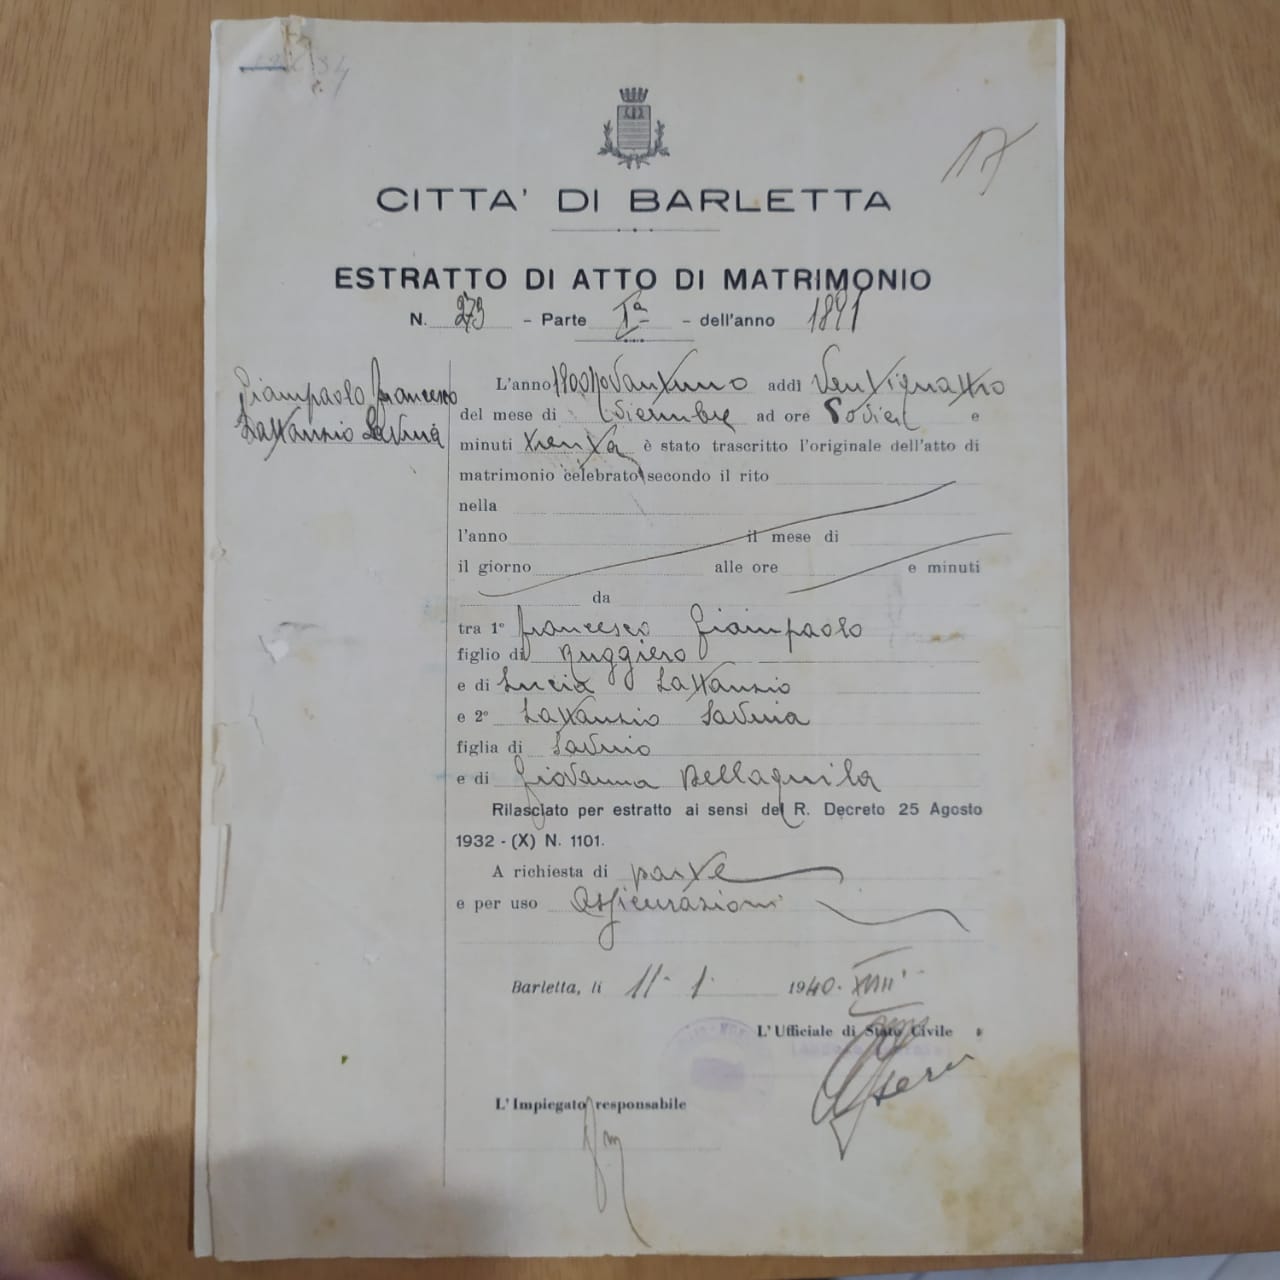 17
CITTA' DI BARLETTA
ESTRATTO DI ATTO DI MATRIMONIO
N. 273 - Parte Iª - dell'anno 1891
Giampaolo Francesco
Lattanzio Savina
L'anno 1800Novantuno addì Ventiquattro
del mese di Dicembre ad ore Dodici e
minuti trenta è stato trascritto l'originale dell'atto di
matrimonio celebrato secondo il rito
nella
l'anno il mese di
il giorno alle ore e minuti
da
tra 1º Francesco Giampaolo
figlio di Ruggiero
e di Lucia Lattanzio
e 2º Lattanzio Savina
figlia di Savino
e di Giovanna Dellaquila
Rilasciato per estratto ai sensi del R. Decreto 25 Agosto
1932 - (X) N. 1101.
A richiesta di parte
e per uso Assicurazioni
Barletta, lì 11 - 1 - 1940 - XVIII
L'Ufficiale di Stato Civile
L'Impiegato responsabile